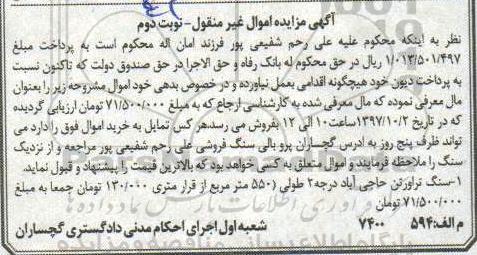 آگهی مزایده اموال غیر منقول - نوبت دوم
نظر به اینکه محکوم علیه علی رحم شفیعی پور فرزند امان اله محکوم است به پرداخت مبلغ
۱/۰۱۳/۵۰۱/۴۹۷ ریال در حق محکوم له بانک رفاه و حق الاجرا در حق صندوق دولت که تاکنون نسبت
به پرداخت دیون خود هیچگونه اقدامی بعمل نیاورده و در خصوص بدهی خود اموال مشروحه زیر را بعنوان
مال معرفی نموده که مال معرفی شده به کارشناسی ارجاع که به مبلغ ۷۱/۵۰۰/۰۰۰ تومان ارزیابی گردیده
که در تاریخ ۱۳۹۷/۱۰/۲ ساعت ۱۰ الی ۱۲ بفروش می رسد، هر کس تمایل به خرید اموال فوق را دارد می
تواند ظرف پنج روز به آدرس گچساران پرو بالی سنگ فروشی علی رحم شفیعی پور مراجعه و از نزدیک
سنگ را ملاحظه فرمایند و اموال متعلق به کسی خواهد بود که بالاترین قیمت را پیشنهاد و قبول نماید.
۱-سنگ تراورتن حاجی آباد درجه ۲ طولی (۵۵۰ متر مربع از قرار متری ۱۳۰/۰۰۰ تومان جمعا به مبلغ
۷۱/۵۰۰/۰۰۰ تومان
م الف: ۵۹۴ ۷۴۰۰ شعبه اول اجرای احکام مدنی دادگستری گچساران